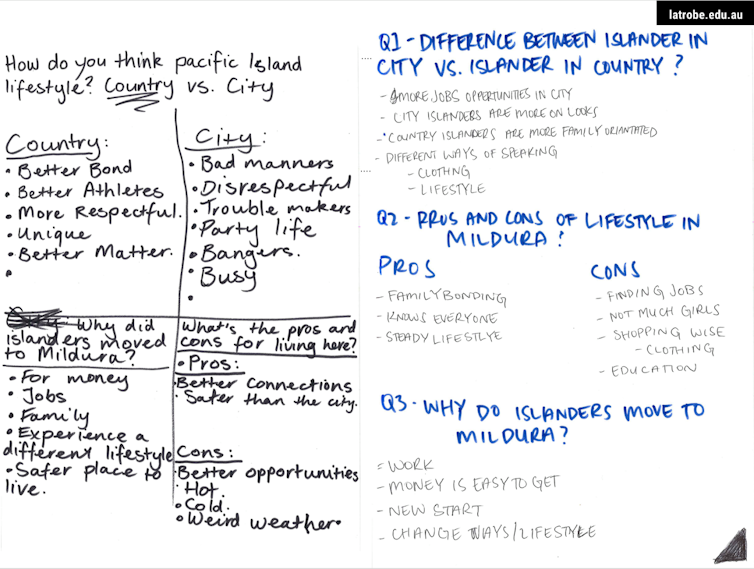 latrobe.edu.au
How do you think pacific Island
lifestyle? Country vs. City
Country:
• Better Bond
• Better Athletes
• More Respectful.
• Unique
• Better Matter.
•
City:
• Bad manners
• Disrespectful
• Trouble makers
• Party life
• Bangers.
• Busy
•
Why did
islanders moved
to Mildura?
• For money
• Jobs
• Family
• Experience a
different lifestyle
• Safer place to
live.
What's the pros and
cons for living here?
• Pros:
• Better Connections
• Safer than the city.
Cons:
• Better opportunities
• Hot.
• Cold.
• Weird weather•
Q1 - DIFFERENCE BETWEEN ISLANDER IN
CITY VS. ISLANDER IN COUNTRY?
- MORE JOBS OPPERTUNITIES IN CITY
- CITY ISLANDERS ARE MORE ON LOOKS
- COUNTRY ISLANDERS ARE MORE FAMILY ORIANTATED
- DIFFERENT WAYS OF SPEAKING
- CLOTHING
- LIFESTYLE
Q2 - PROS AND CONS OF LIFESTYLE IN
MILDURA?
PROS
- FAMILY BONDING
- KNOWS EVERYONE
- STEADY LIFESTLYE
CONS
- FINDING JOBS
- NOT MUCH GIRLS
- SHOPPING WISE
- CLOTHING
- EDUCATION
Q3 - WHY DO ISLANDERS MOVE TO
MILDURA?
- WORK
- MONEY IS EASY TO GET
- NEW START
- CHANGE WAYS/LIFESTYLE